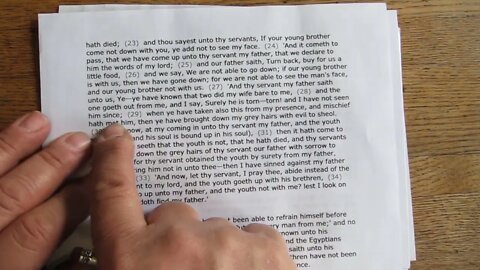 hath died; (23) and thou sayest unto thy servants, If your young brother
come not down with you, ye add not to see my face. (24) 'And it cometh to
pass, that we have come up unto thy servant my father, that we declare to
him the words of my lord; (25) and our father saith, Turn back, buy for us a
little food, (26) and we say, We are not able to go down; if our young brother
is with us, then we have gone down; for we are not able to see the man's face,
and our young brother not with us. (27) 'And thy servant my father saith
unto us, Ye—ye have known that two did my wife bare to me, (28) and the
one goeth out from me, and I say, Surely he is torn—torn! and I have not seen
him since; (29) when ye have taken also this from my presence, and mischief
hath met him, then ye have brought down my grey hairs with evil to sheol.
now, at my coming in unto thy servant my father, and the youth
and his soul is bound up in his soul), (31) then it hath come to
seeth that the youth is not, that he hath died, and thy servants
down the grey hairs of thy servant our father with sorrow to
for thy servant obtained the youth by surety from my father,
ring him not in unto thee—then I have sinned against my father
(33) 'And now, let thy servant, I pray thee, abide instead of the
nt to my lord, and the youth goeth up with his brethren, (34)
o up unto my father, and the youth not with me? lest I look on
doth find my father.'
t been able to refrain himself before
ery man from me;' and no
known unto his
and the Egyptians
saith unto his
thren have not been
ence.